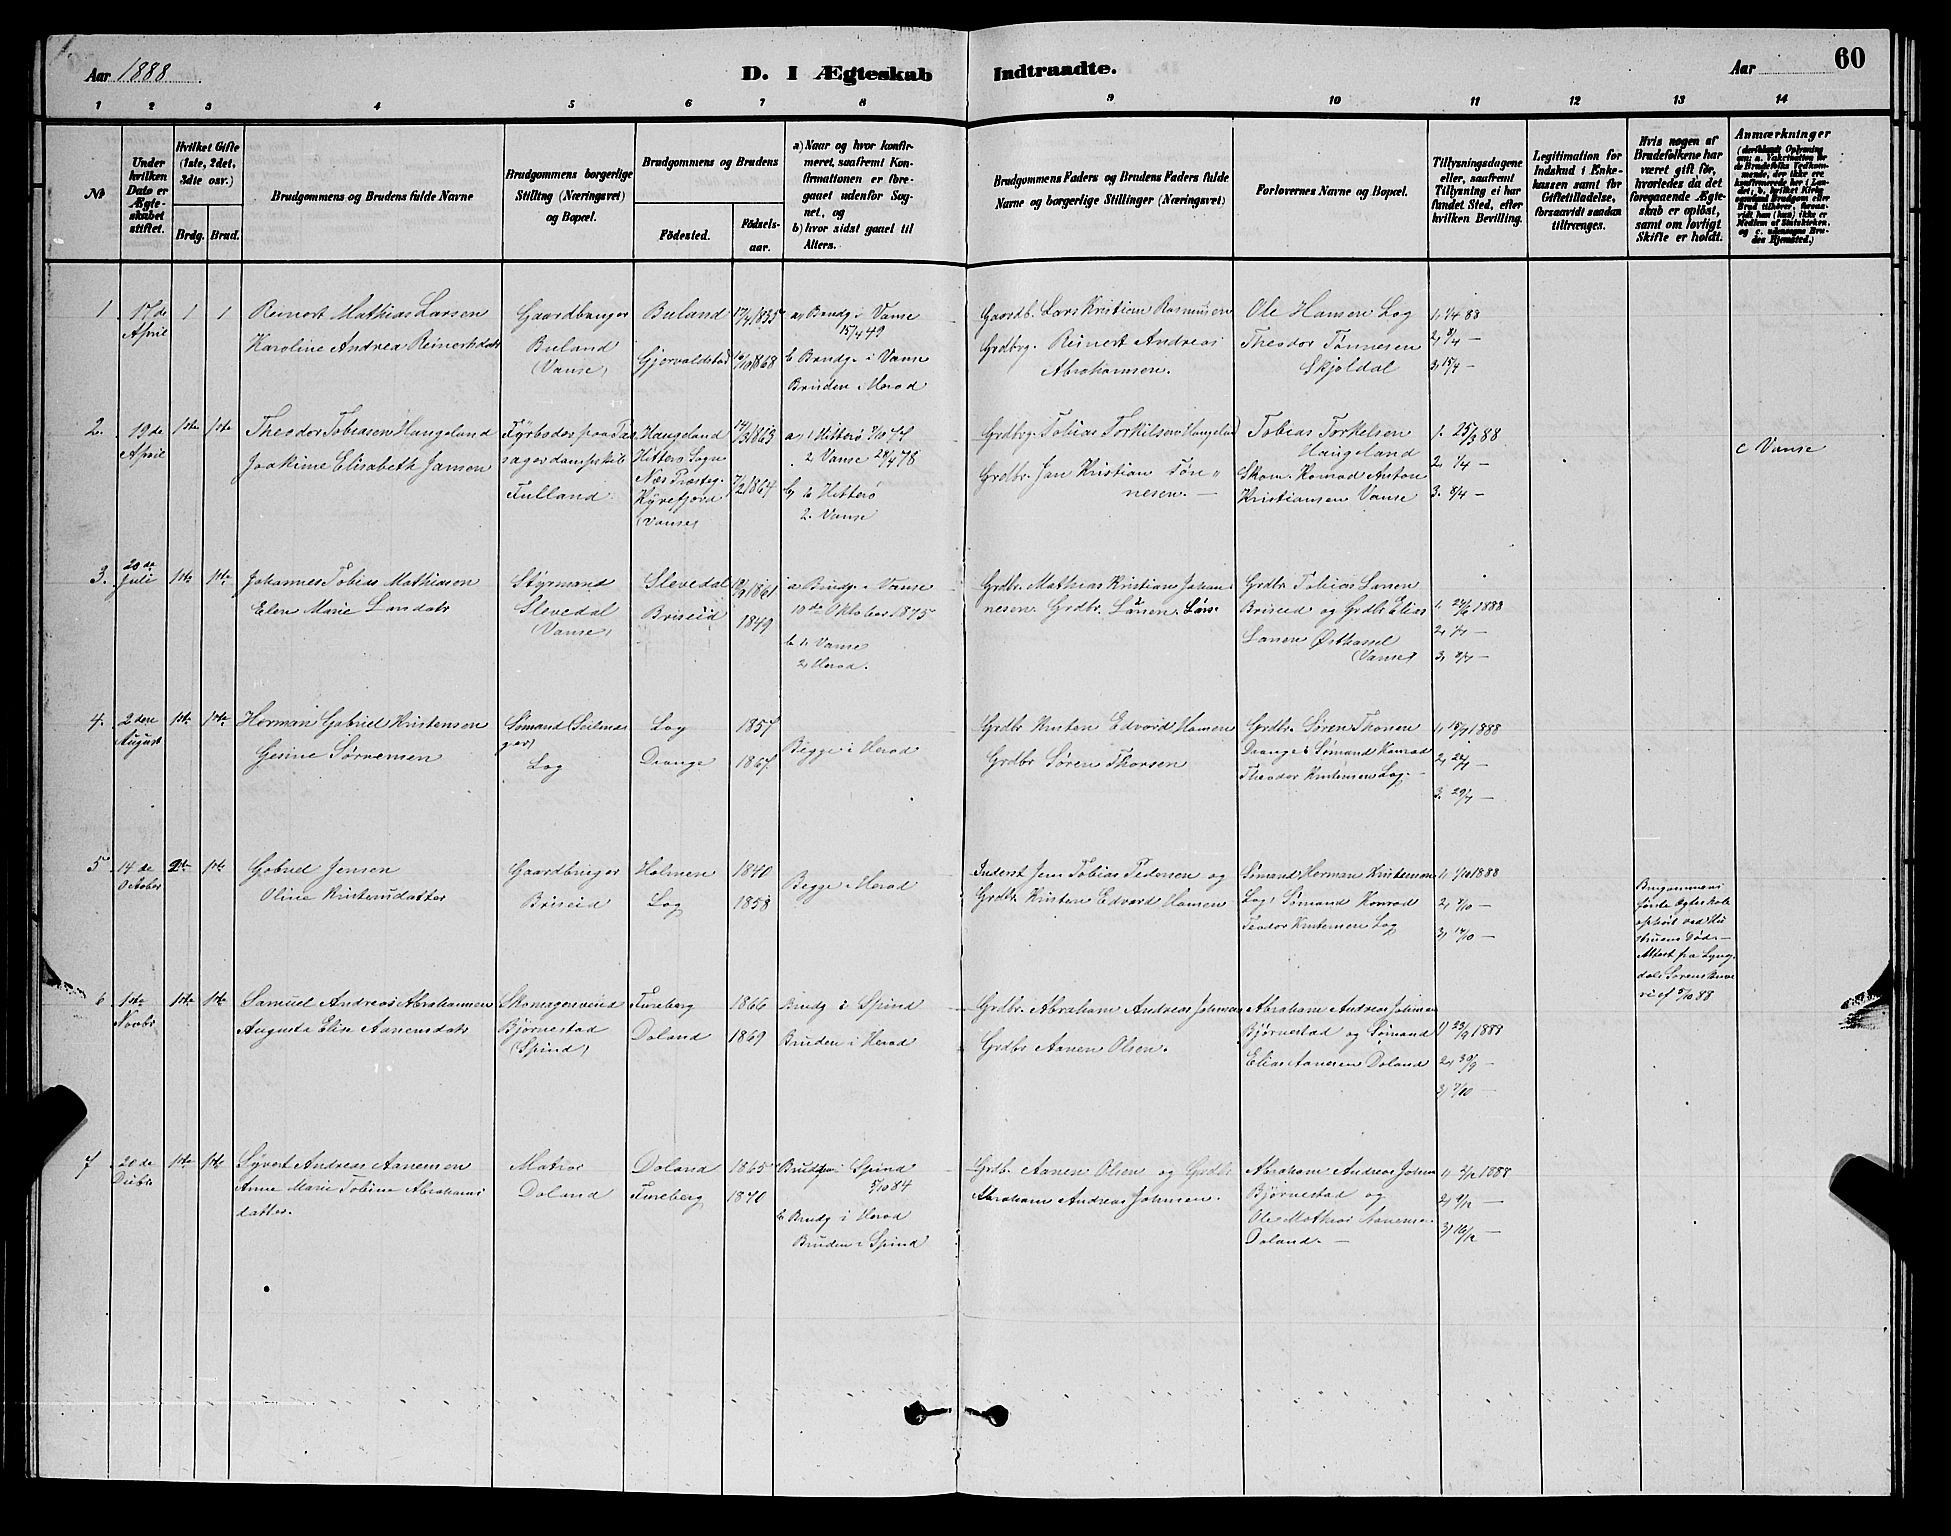 Aar 1888
D. I Ægteskab Indtraadte.
Aar
60
1 2 3 4 5 6 7 8 9 10 11 12 13 14
№
Under hvilken Dato er Ægteskabet stiftet.
Hvilket Gifte (1ste, 2det, 3die osv.)
Brdg. Brud.
Brudgommens og Brudens fulde Navne
Brudgommens borgerlige Stilling (Næringsvei) og Bopæl.
Brudgommens og Brudens
Fødested.
Fødselsaar.
a) Naar og hvor konfirmeret, saafremt Konfirmationen er foregaaet udenfor Sognet, og
b) hvor sidst gaaet til Alters.
Brudgommens Faders og Brudens Faders fulde Navne og borgerlige Stillinger (Næringsvei)
Forlovernes Navne og Bopæl.
Tillysningsdagene eller, saafremt Tillysning ei har fundet Sted, efter hvilken Bevilling.
Legitimation for Indskud i Enkekassen samt for Giftetilladelse, forsaavidt saadan tiltrænges.
Hvis nogen af Brudefolkene har været gift før, hvorledes da det foregaaende Ægteskab er opløst, samt om lovligt Skifte er holdt.
Anmærkninger
1 17de April 1 1
Reinert Mathias Larsen
Karoline Andrea Reinertsdatr
Gaardbruger
Buland
(Vanse)
Buland 17/4 1835
Gjervaldstad 10/10 1868
a, Brudg. i Vanse
15/4 49
b Brudg. i Vanse
Bruden i Herad
Gaardb. Lars Kristian Rasmussen
Grdbrg. Reinert Andreas
Abrahamsen.
Ole Hansen Log
Theodor Tønnesen
Skjoldal
1, 1/4 88
2, 8/4 —
3, 15/4 —
2. 19de April 1ste 1ste
Theodor Tobiasen Haugeland
Joakime Elisabeth Jansen
Fyrbøder paa Pas
sagerdampskib
Fulland
Haugeland
Hitterø Sogn
Næs Præsteg.
Kyrefjord
(Vanse)
14/3 1863
7/2 1864
a, 1 Hitterø
2 Vanse 28/4 78
b, 1 Hitterø
2. Vanse
Grdbrg. Tobias Torkilsen Haugeland
Grdbr. Jan Kristian Tøn-
nesen. —
Tobias Torkelsen
Haugeland
Skom. Konrad Anton
Kristiansen Vanse
1. 25/3 88
2, 1/4 —
3. 8/4 —
c Vanse
3. 20de Juli 1ste 1ste
Johannes Tobias Mathiasen
Elen Marie Larsdatr
Styrmand
Slevedal
(Vanse)
Slevedal 1861
Briseid 1849
a Brudg. i Vanse
10de Oktober 1875
b 1, Vanse
2, Herad.
Grdbr. Mathias Kristian Johan
nesen. Grdbr. Larsen. Lars
Grdbr Tobias Larsen
Briseid og Grdbr Elias
Larsen Østhassel
(Vanse)
1. 24/6 1888
2, 1/7 —
3, 8/7 —
4. 2den August 1ste 1ste
Herman Gabriel Kristensen
Gesine Sørensen
Sømand (Seilma
ger)
Log
Log 1857
Drange 1867
Begge i Herad
Grdbr Kristen Edvard Hansen
Grdbr Søren Thorsen
Grdbr. Søren Thorsen
Drange & Sømand Konrad
Theodor Kristensen Log. —
1, 15/7 1888
2, 22/7 —
3. 29/7 —
5 14de October 2de 1ste
Gabriel Jensen
Oline Kristensdatter
Gaardbruger
Briseid
Holmen 1840
Log 1858
Begge i Herad
Inderst Jens Tobias Pedersen og
Grdbr. Kristen Edvard Hansen
Sømand Herman Kristensen
Log, Sømand Konrad
Teodor Kristensen Log
1, 1/10 1888
2, 7/10 —
3, 14/10 —
Brugommens
første Ægteskab
ophørt ved Hu
struens Død. —
Attest fra Lyng
dals Sorenskrive
ri af 5/10 88
6 1ste Novbr 1ste 1ste
Samuel Andreas Abrahamsen
Augusta Elise Aanensdatr
Skomagersvend
Bjørnestad
(Spind)
Fureberg 1866
Doland 1869
Brudg i Spind
Bruden i Herad
Grdbr. Abraham Andreas Johnsen
Grdbr Aanen Olsen.
Abraham Andreas Johnsen
Bjørnestad og Sømand
Elias Aanesen Doland
1) 23/9 1888
2, 30/9 —
3, 7/10 —
7 20de Decbr 1ste 1ste
Syvert Andreas Aanensen
Anne Marie Tobine Abrahams
datter.
Matros
Doland
Doland 1865
Fureberg 1870
Brudg i Spind
5/10 84
b Brudg i Herad
Bruden i Spind
Grdb. Aanen Olsen og Grdbr
Abraham Andreas Johnsen.
Abraham Andreas Johns
Bjørnestad og
Ole Mathias Aanense
Doland. —
1, 2/12 1888
2, 9/12 —
3, 16/12 —